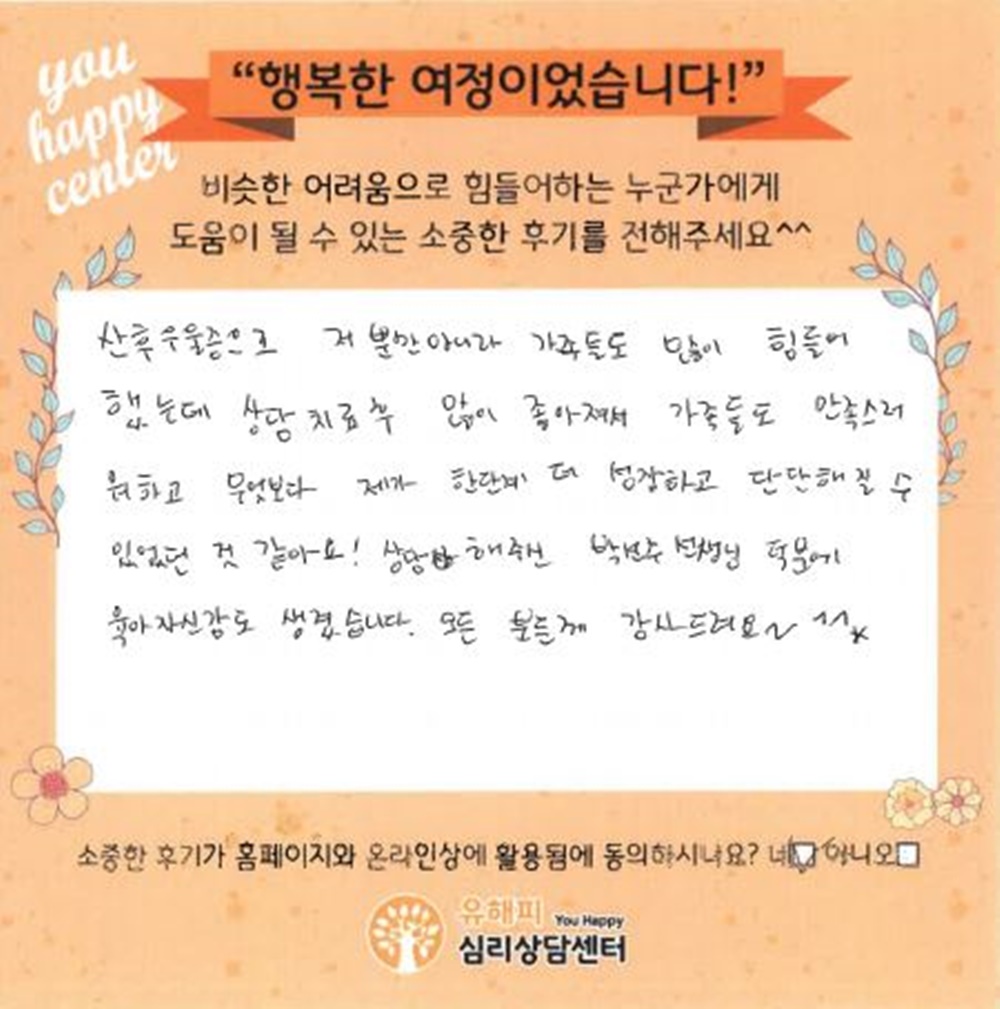 you
happy
center
“행복한 여정이었습니다!”
비슷한 어려움으로 힘들어하는 누군가에게
도움이 될 수 있는 소중한 후기를 전해주세요^^
산후우울증으로 저 뿐만아니라 가족들도 많이 힘들어
했는데 상담치료후 많이 좋아져서 가족들도 만족스러
워하고 무엇보다 제가 한단계 더 성장하고 단단해질 수
있었던 것 같아요! 상담 해주신 선생님 덕분에
육아자신감도 생겼습니다. 모든 분들께 감사드려요~ ^^*
소중한 후기가 홈페이지와 온라인상에 활용됨에 동의하시나요? 네 아니오
유해피 You Happy
심리상담센터